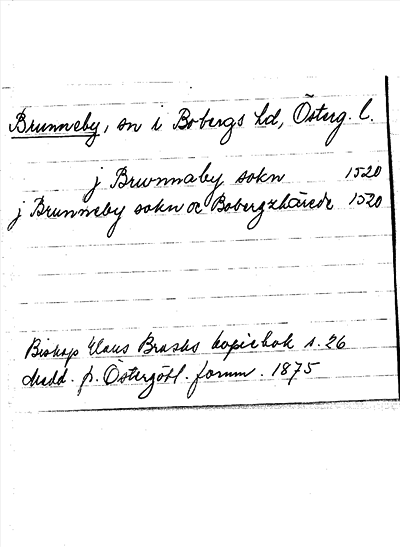 Brunneby, sn i Bobergs hd, Österg. l.
j Brwnnaby sokn 1520
j Brunneby sokn oc Bobergxhärede 1520
Biskop Hans Brasks kopiebok s. 26
medd. fr. Östergötl. fornm. 1875